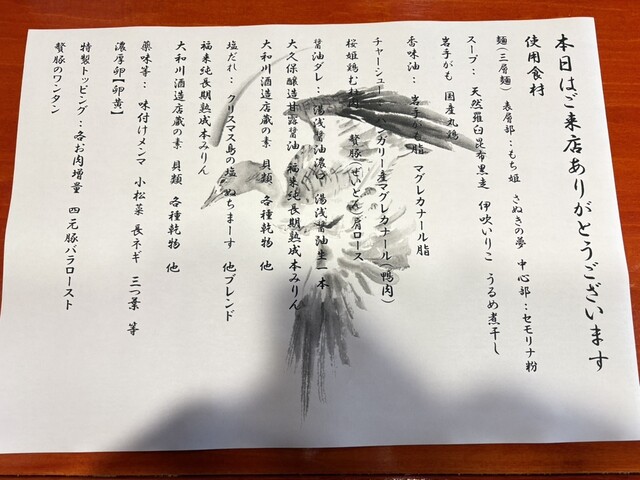 本日はご来店ありがとうございます
使用食材
麺(三層麺) 表層部:もち姫 さぬきの夢 中心部:セモリナ粉
スープ: 天然羅臼昆布黒走 伊吹いりこ うるめ煮干し
岩手がも 国産丸鶏
香味油: 岩手がも脂 マグレカナール脂
チャーシュー: ハンガリー産マグレカナール(鴨肉)
桜姫鶏むね肉 贅豚(ぜいとん)肩ロース
醤油ダレ: 湯浅醤油濃口 湯浅醤油生一本
大久保醸造甘露醤油 福来純長期熟成本みりん
大和川酒造店蔵の素 貝類 各種乾物 他
塩だれ: クリスマス島の塩 ぬちまーす 他ブレンド
福来純長期熟成本みりん
大和川酒造店蔵の素 貝類 各種乾物 他
薬味等: 味付けメンマ 小松菜 長ネギ 三つ葉 等
濃厚卵【卵黄】
特製トッピング:各お肉増量 四元豚バラロースト
贅豚のワンタン